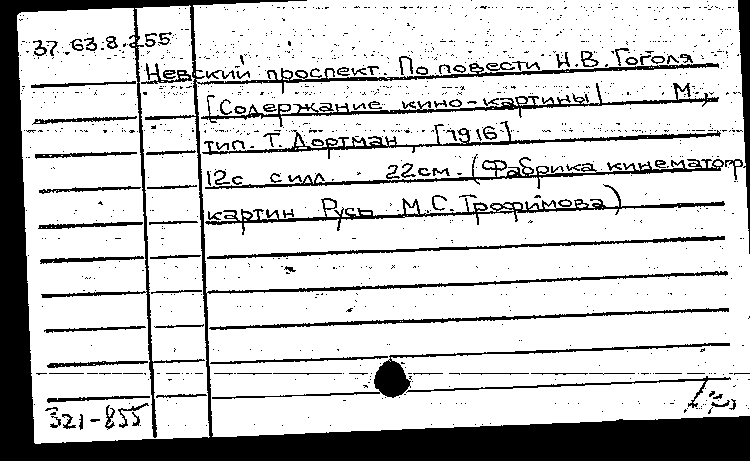 37.63.8.255
Невский проспект. По повести Н.В. Гоголя
[Содержание кино-картины] М.,
тип. Т. Дортман, [1916]
12с с илл. 22см. (Фабрика кинематогр.
картин Русь М.С. Трофимова)
321-855